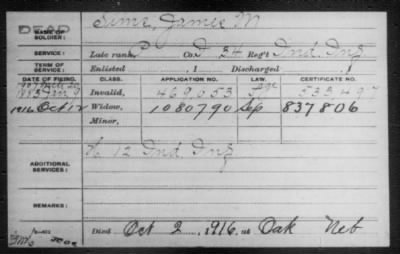 DEAD
NAME OF SOLDIER: Sims, James M
SERVICE: Late rank P Co. D, 34 Reg't Ind. Inf.
TERM OF SERVICE: Enlisted , 1 Discharged , 1
DATE OF FILING. CLASS. APPLICATION NO. LAW. CERTIFICATE NO.
Invalid, 469053 533497
1916 Oct 12 Widow, 1080790 837806
Minor,
ADDITIONAL SERVICES: 12 Ind. Inf
REMARKS:
Died Oct 2, 1916, at Oak Neb